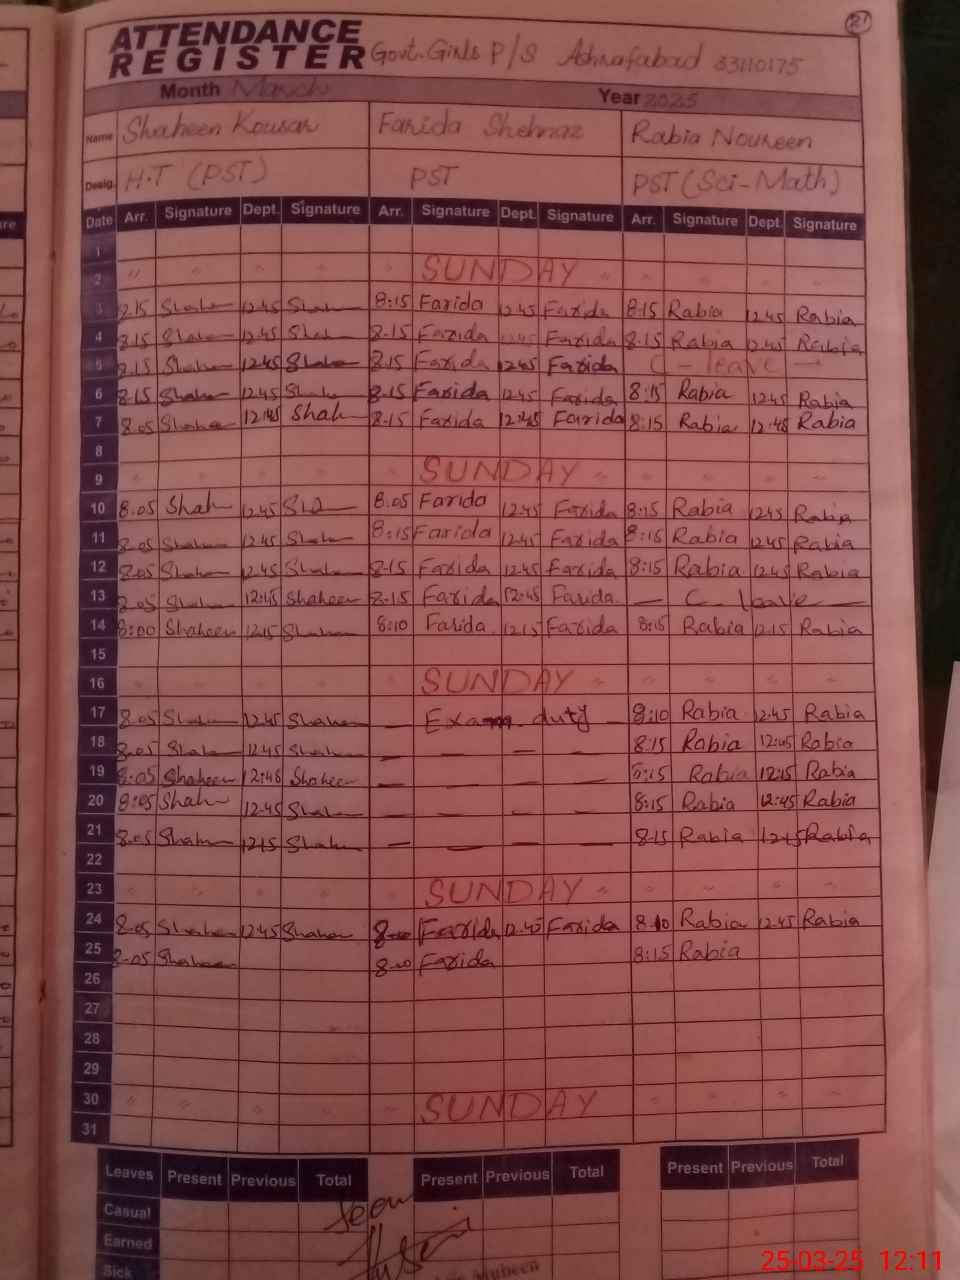 21
ATTENDANCE
REGISTER Govt. Girls P/S Ashrafabad 33110175
Month March Year 2025
Name Shaheen Kousar Farida Shehnaz Rabia Noureen
Desig. H.T (PST) PST PST (Sci-Math)
Date Arr. Signature Dept. Signature Arr. Signature Dept. Signature Arr. Signature Dept. Signature
1
2 " " " " " SUNDAY " " " "
3 Shah 12.45 Shah 8:15 Farida 12.45 Farida 8.15 Rabia 12.45 Rabia
4 8.15 Shah 12.45 Shah 8.15 Farida Farida 8.15 Rabia 12.45 Rabia
5 Shah 12.45 Shah 8.15 Farida 12.45 Farida C - leave -
6 8.15 Shah 12.45 Shah 8.15 Farida 12.45 Farida 8:15 Rabia 12.45 Rabia
7 8.05 Shah 12:45 Shah 8.15 Farida 12:45 Farida 8:15 Rabia 12:45 Rabia
8
9 " " " " " SUNDAY " " " "
10 8.05 Shah 12.45 8.05 Farida 12.45 Farida 8:15 Rabia 12.45 Rabia
11 8.05 Shah 12.45 Shah 8:15 Farida 12.45 Farida 8:15 Rabia 12.45 Rabia
12 8.05 Shah 12.45 Shah 8.15 Farida 12.45 Farida 8:15 Rabia 12.45 Rabia
13 8.05 Shah 12:45 Shaheen 8.15 Farida 12:45 Farida. — C. leave —
14 8:00 Shaheen 12.15 Shah 8:10 Farida 12.15 Farida 8:15 Rabia 12.15 Rabia
15
16 " " " " " SUNDAY " " " "
17 8.05 Shah 12.45 Shahee — Exam. duty — 8:10 Rabia 12.45 Rabia
18 8.05 Shah 12.45 Shah — — — — 8:15 Rabia 12:45 Rabia
19 8:05 Shaheen 12:45 Shaheen — — — — Rabia 12:15 Rabia
20 8:05 Shah 12.45 Shah — — — — 8:15 Rabia 12:45 Rabia
21 8.05 Shah 12.15 Shah — — — — 8.15 Rabia 12.45 Rabia
22
23 " " " " " SUNDAY " " " "
24 8.05 Shahee 12.45 Shahee Farida 12.45 Farida 8.10 Rabia 12.45 Rabia
25 8.05 Shaheen Farida 8:15 Rabia
26
27
28
29
30 " " " " " SUNDAY " " " "
31
Leaves Present Previous Total Present Previous Total Present Previous Total
Casual Seen
Earned
Sick Mubeen
25-03-25 12:11